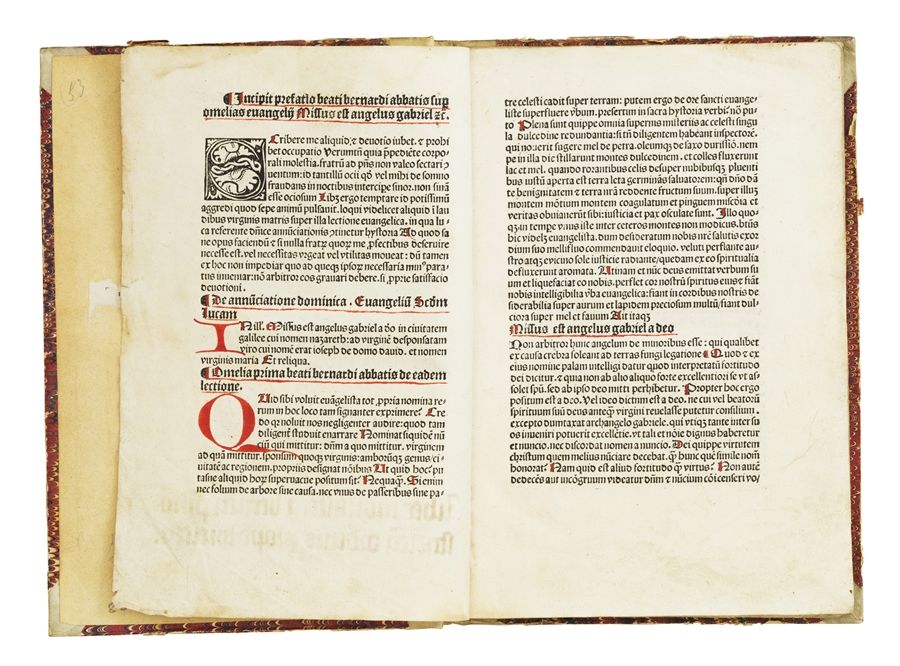 53
¶ Incipit prefatio beati bernardi abbatis sup
omelias euangelij Missus est angelus gabriel ꝛc̄.
Scribere me aliquid, ⁊ deuotio iubet. ⁊ prohi
bet occupatio Verumtn̄ quia p̄pediēte corpo/
rali molestia. fratrū ad pn̄s non valeo sectari ↄ
uentum: id tantillū ocii qd̄ vel mihi de somno
fraudans in noctibus intercipe sino. non sinā
esse ociosum Libꝫ ergo temptare id potissimū
aggredi quod sepe animū pulsauit. loqui videlicet aliquid ī lau
dibus virginis matris super illa lectione euangelica. in qua lu
ca referente dn̄ice annūciationis ↄtinetur hystoria Ad quod sa
ne opus faciendū ⁊ si nulla fratꝝ quorꝫ me ꝓfectibus deseruire
necesse est. vel necessitas vrgeat vel vtilitas moueat: dū tamen
ex hoc non impediar quo ad queqꝫ ipsoꝝ necessaria min⁹ para-
tus inueniar: nō arbitror eos grauari debere. si ꝓprie satisfacio
deuotioni.
¶ De annūciatione dominica. Euangeliū Scdm̄
lucam
IN ill̓. Missus est angelus gabriel a dō in ciuitatem
galilee cui nomen nazareth: ad virginē desponsatam
viro cui nomē erat ioseph de domo dauid. et nomen
virginis maria Et reliqua.
¶ Omelia prima beati bernardi abbatis de eadem
lectione.
QUid sibi voluit euāgelista tot ꝓpria nomina re-
rum in hoc loco tam signanter exprimere? Cre
do qꝫ noluit nos negligenter audire: quod tam
diligent̄ studuit enarrare Nominat siquidē nū
ciū qui mittitur. dn̄m a quo mittitur. virginem
ad quā mittitur. sponsum quoqꝫ virginis: amborūqꝫ genus: ci-
uitatē ac regionem. propriis designat nōibus Ut quid hoc? pu
tasne aliquid horꝝ superuacue positum sit? Nequaqꝫ. Si enim
nec folium de arbore sine causa. nec vnus de passeribus sine pa-
tre celesti cadit super terram: putem ergo de ore sancti euange-
liste superfluere v̄bum. presertim in sacra hystoria verbi? nō pu-
to Plena sunt quippe omnia supernis misteriis ac celesti singu
la dulcedine redundantia: si tn̄ diligentem habeant inspectorē.
qui nouerit sugere mel de petra. oleumqꝫ de saxo durissīo. nem
pe in illa die stillarunt montes dulcedinem. et colles fluxerunt
lac et mel. quando rorantibus celis desuper nubibusqꝫ pluenti
bus iustū aperta est terra leta germināꝫ saluatorem: qn̄ dn̄o dā
te benignitatem ⁊ terra nr̄a reddente fructum suum. super illuꝫ
montem mōtium montem coagulatum et pinguem misc̄dia et
veritas obuiauerūt sibi: iusticia et pax osculate sunt. Illo quo-
qꝫ in tempe vnus iste inter ceteros montes non modicus. btūs
hic videlꝫ euangelista. dum desideratum nobis nr̄e salutis exor
dium suo mellifluo commendauit eloquio. veluti perflante au-
stro atqꝫ euicino sole iusticie radiante: quedam ex eo spiritualia
defluxerunt aromata. Utinam et nūc deus emittat verbum su
um et liquefaciat ea nobis. perflet cor nostrū spiritus eius: ⁊ fiāt
nobis intelligibilia v̄ba euangelica: fiant in cordibus nostris de
siderabilia super aurum et lapidem preciosum multū, fiant dul-
ciora super mel et fauum Ait itaqꝫ
Missus est angelus gabriel a deo
Non arbitror hunc angelum de minoribus esse: qui qualibet
ex causa crebra soleant ad terras fungi legatione ¶ Quod ⁊ ex
eius nomine palam intelligi datur quod interpretatū fortitudo
dei dicitur. ⁊ quia non ab alio aliquo forte excellentiori se vt as-
solet spū. sed ab ipso deo mitti perhibetur. Propter hoc ergo
positum est a deo. Vel ideo dictum est a deo. ne cui vel beatorū
spirituum suū deus anteqꝫ virgini reuelasse putetur consilium.
excepto dumtaxat archangelo gabriele. qui vtiqꝫ tante inter su
os inueniri potuerit excellētie. vt tali et nōie dignus haberetur
et nuncio. nec discordat nomen a nuncio. Dei quippe virtutem
christum quem melius nūciare decebat. qꝫ hunc quē simile nom̄
honorat? Nam quid est aliud fortitudo qꝫ virtus? Non autē
dedecēs aut incōgruum videatur dn̄m ⁊ nūcium cōi censeri vo/